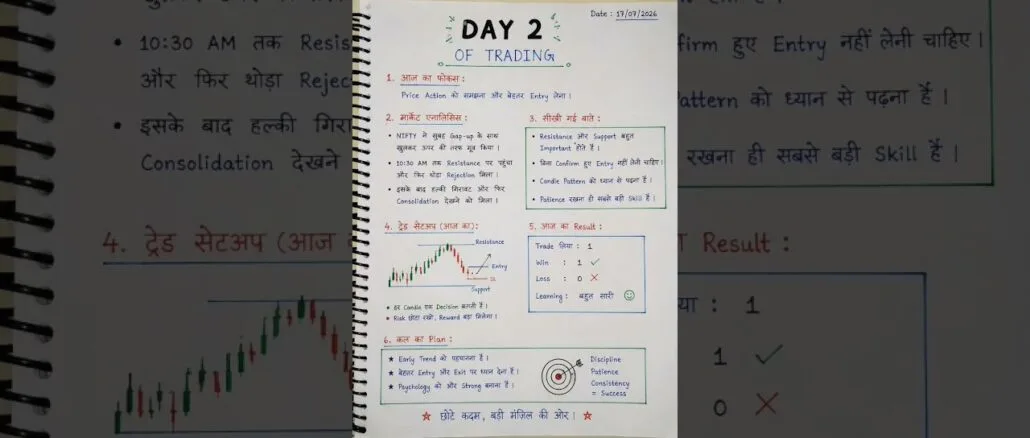 Date : 17/07/2026
DAY 2
OF TRADING
1. आज का फोकस :
Price Action को समझना और बेहतर Entry लेना ।
2. मार्केट एनालिसिस :
• NIFTY ने सुबह Gap-up के साथ
खुलकर ऊपर की तरफ मूव किया ।
• 10:30 AM तक Resistance पर पहुंचा
और फिर थोड़ा Rejection मिला ।
• इसके बाद हल्की गिरावट और फिर
Consolidation देखने को मिला ।
3. सीखी गई बातें :
• Resistance और Support बहुत
Important होते हैं ।
• बिना Confirm हुए Entry नहीं लेनी चाहिए ।
• Candle Pattern को ध्यान से पढ़ना है ।
• Patience रखना ही सबसे बड़ी Skill है ।
4. ट्रेड सेटअप (आज का) :
Resistance
Entry
Support
• हर Candle एक Decision बताती है ।
• Risk छोटा रखो, Reward बड़ा मिलेगा ।
5. आज का Result :
Trade लिया : 1
Win : 1 ✓
Loss : 0 ✗
Learning : बहुत सारी ☺
6. कल का Plan :
★ Early Trend को पहचानना है ।
★ बेहतर Entry और Exit पर ध्यान देना है ।
★ Psychology को और Strong बनाना है ।
Discipline
Patience
Consistency
= Success
★ छोटे कदम, बड़ी मंज़िल की ओर । ★
• 10:30 AM तक Resis
और फिर थोड़ा Rejec
• इसके बाद हल्की गिरा
Consolidation देखने
4. ट्रेड सेटअप (आज
firm हुए Entry नहीं लेनी चाहिए ।
Pattern को ध्यान से पढ़ना है ।
रखना ही सबसे बड़ी Skill है ।
Result :
या : 1
1 ✓
0 ✗